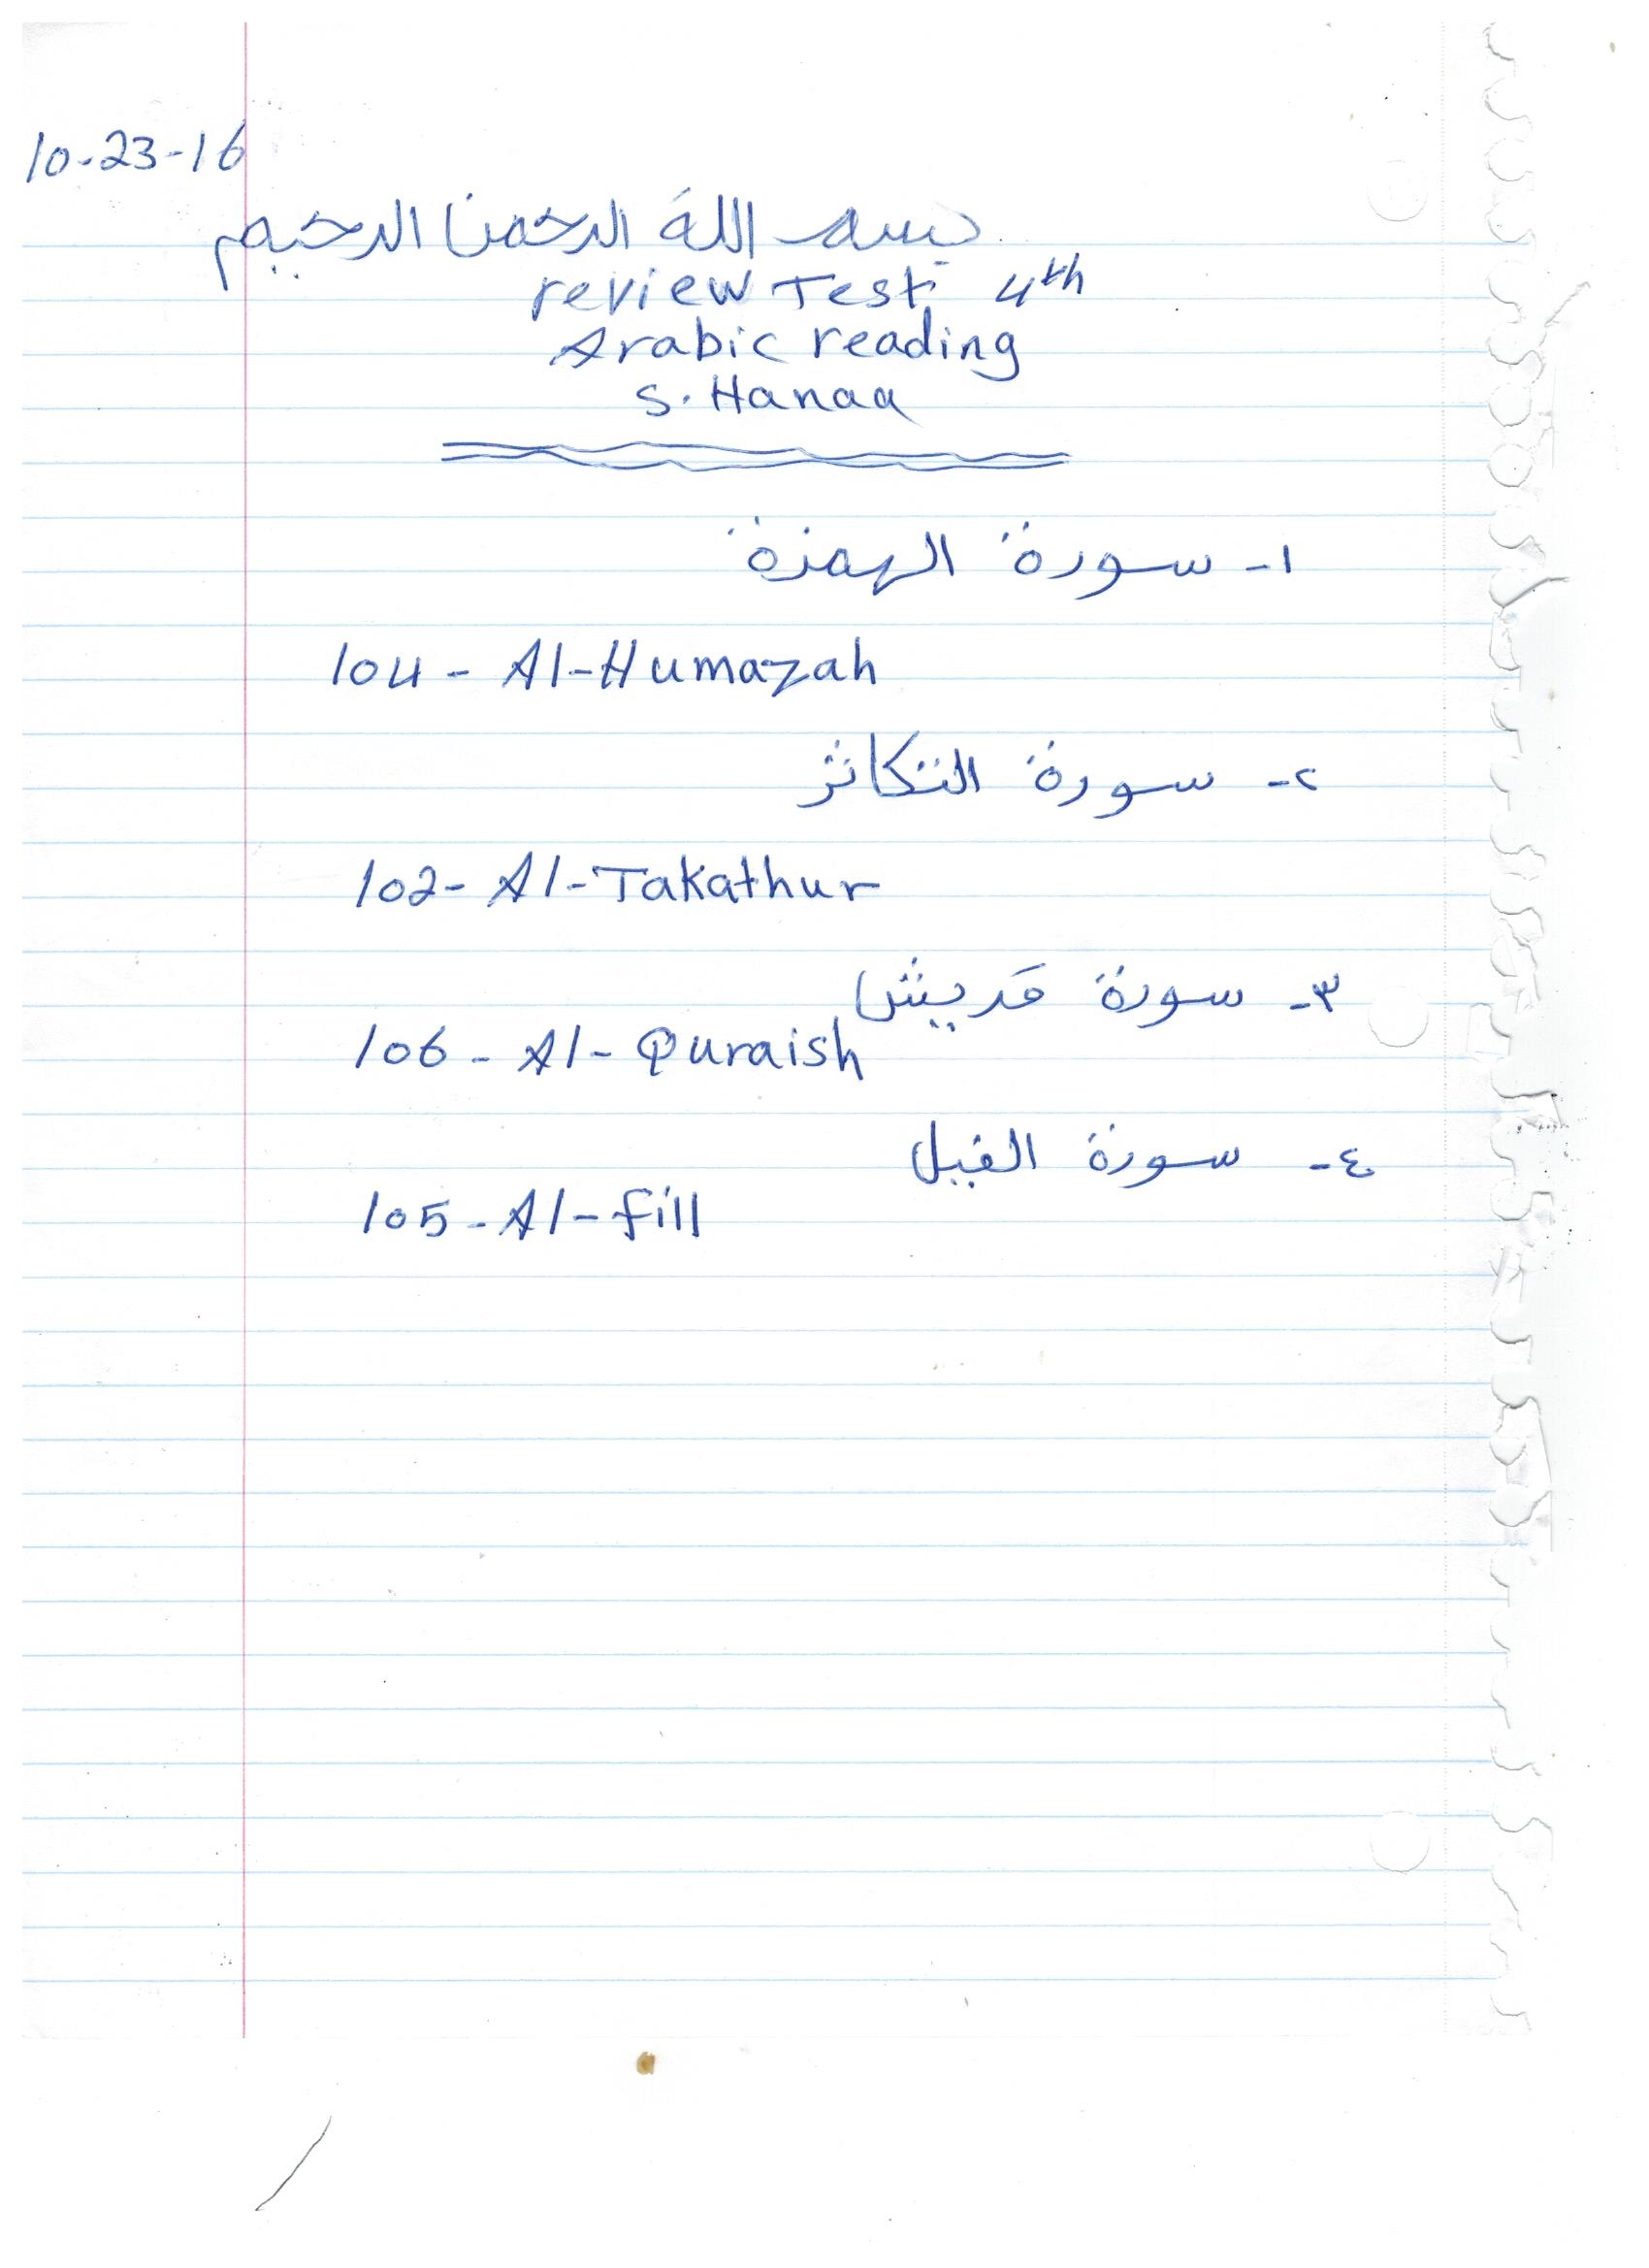 10-23-16
بسم الله الرحمن الرحيم
review Test 4th
Arabic reading
S. Hanaa
١- سورة الهمزة
104 - Al-Humazah
٢- سورة التكاثر
102- Al-Takathur
٣- سورة قريش
106 - Al- Quraish
٤- سورة الفيل
105 - Al-fill